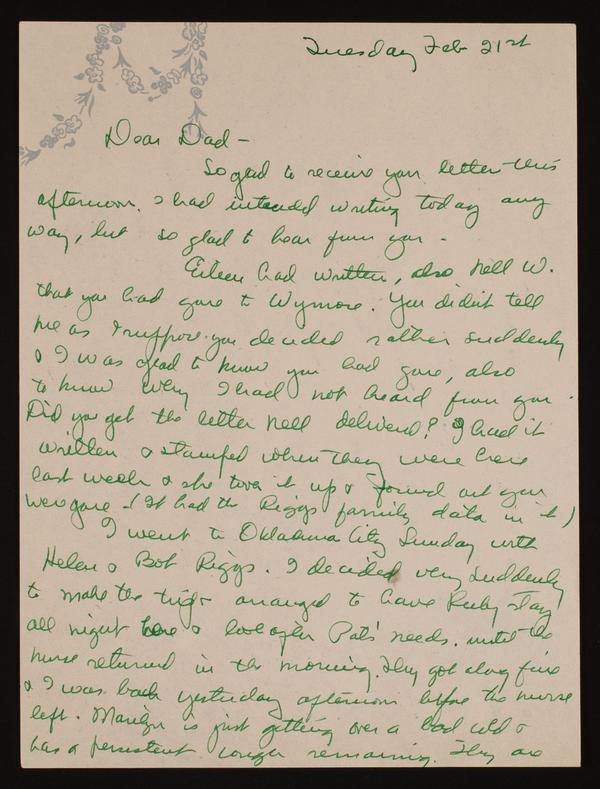 Tuesday Feb 21st
Dear Dad-
So glad to receive your letter this
afternoon. I had intended writing today any
way, but so glad to hear from you.
Eileen had written, also Nell W.
that you had gone to Wymore. You didn't tell
me as I suppose you decided rather suddenly
& I was glad to know you had gone, also
to know why I had not heard from you.
Did you get the letter Nell delivered? I had it
written & stamped when they were here
last week & she took it up & found out you
were gone - (It had the Riggs family data in it)
I went to Oklahoma City Sunday with
Helen & Bob Riggs. I decided very suddenly
to make the trip & arranged to have Ruby stay
all night here & look after Pat's needs. until the
nurse returned in the morning. They got along fine
& I was back yesterday afternoon before the nurse
left. Marilyn is just getting over a bad cold &
has a persistent cough remaining. They are